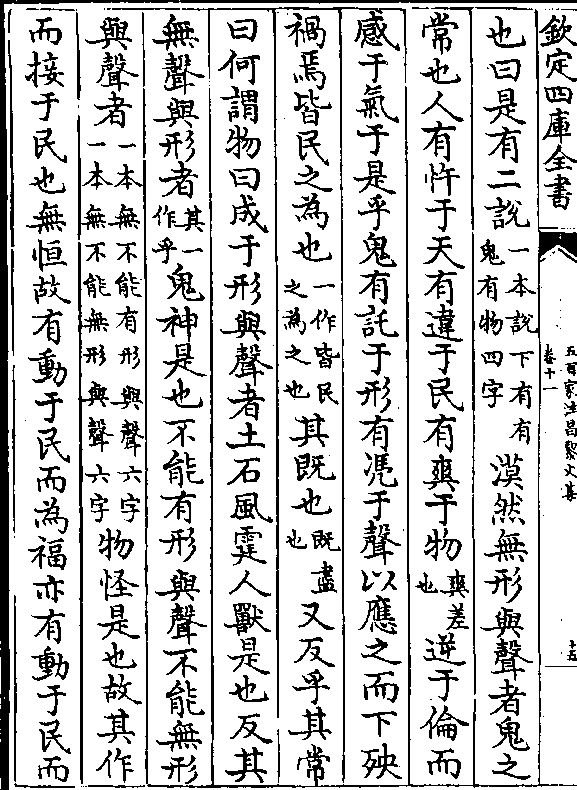 欽定四庫全書
五百家注昌黎文集
卷十一
十五
也曰是有二說一本說下有有鬼有物四字漠然無形與聲者鬼之
常也人有忤于天有違于民有爽于物爽差也逆于倫而
感于氣于是乎鬼有託于形有憑于聲以應之而下殃
禍焉皆民之為也一作皆民之為之也其既也既盡也又反乎其常
曰何謂物曰成于形與聲者土石風霆人獸是也反其
無聲與形者其一作乎鬼神是也不能有形與聲不能無形
與聲者一本無不能有形與聲六字一本無不能無形與聲六字物怪是也故其作
而接于民也無恒故有動于民而為福亦有動于民而